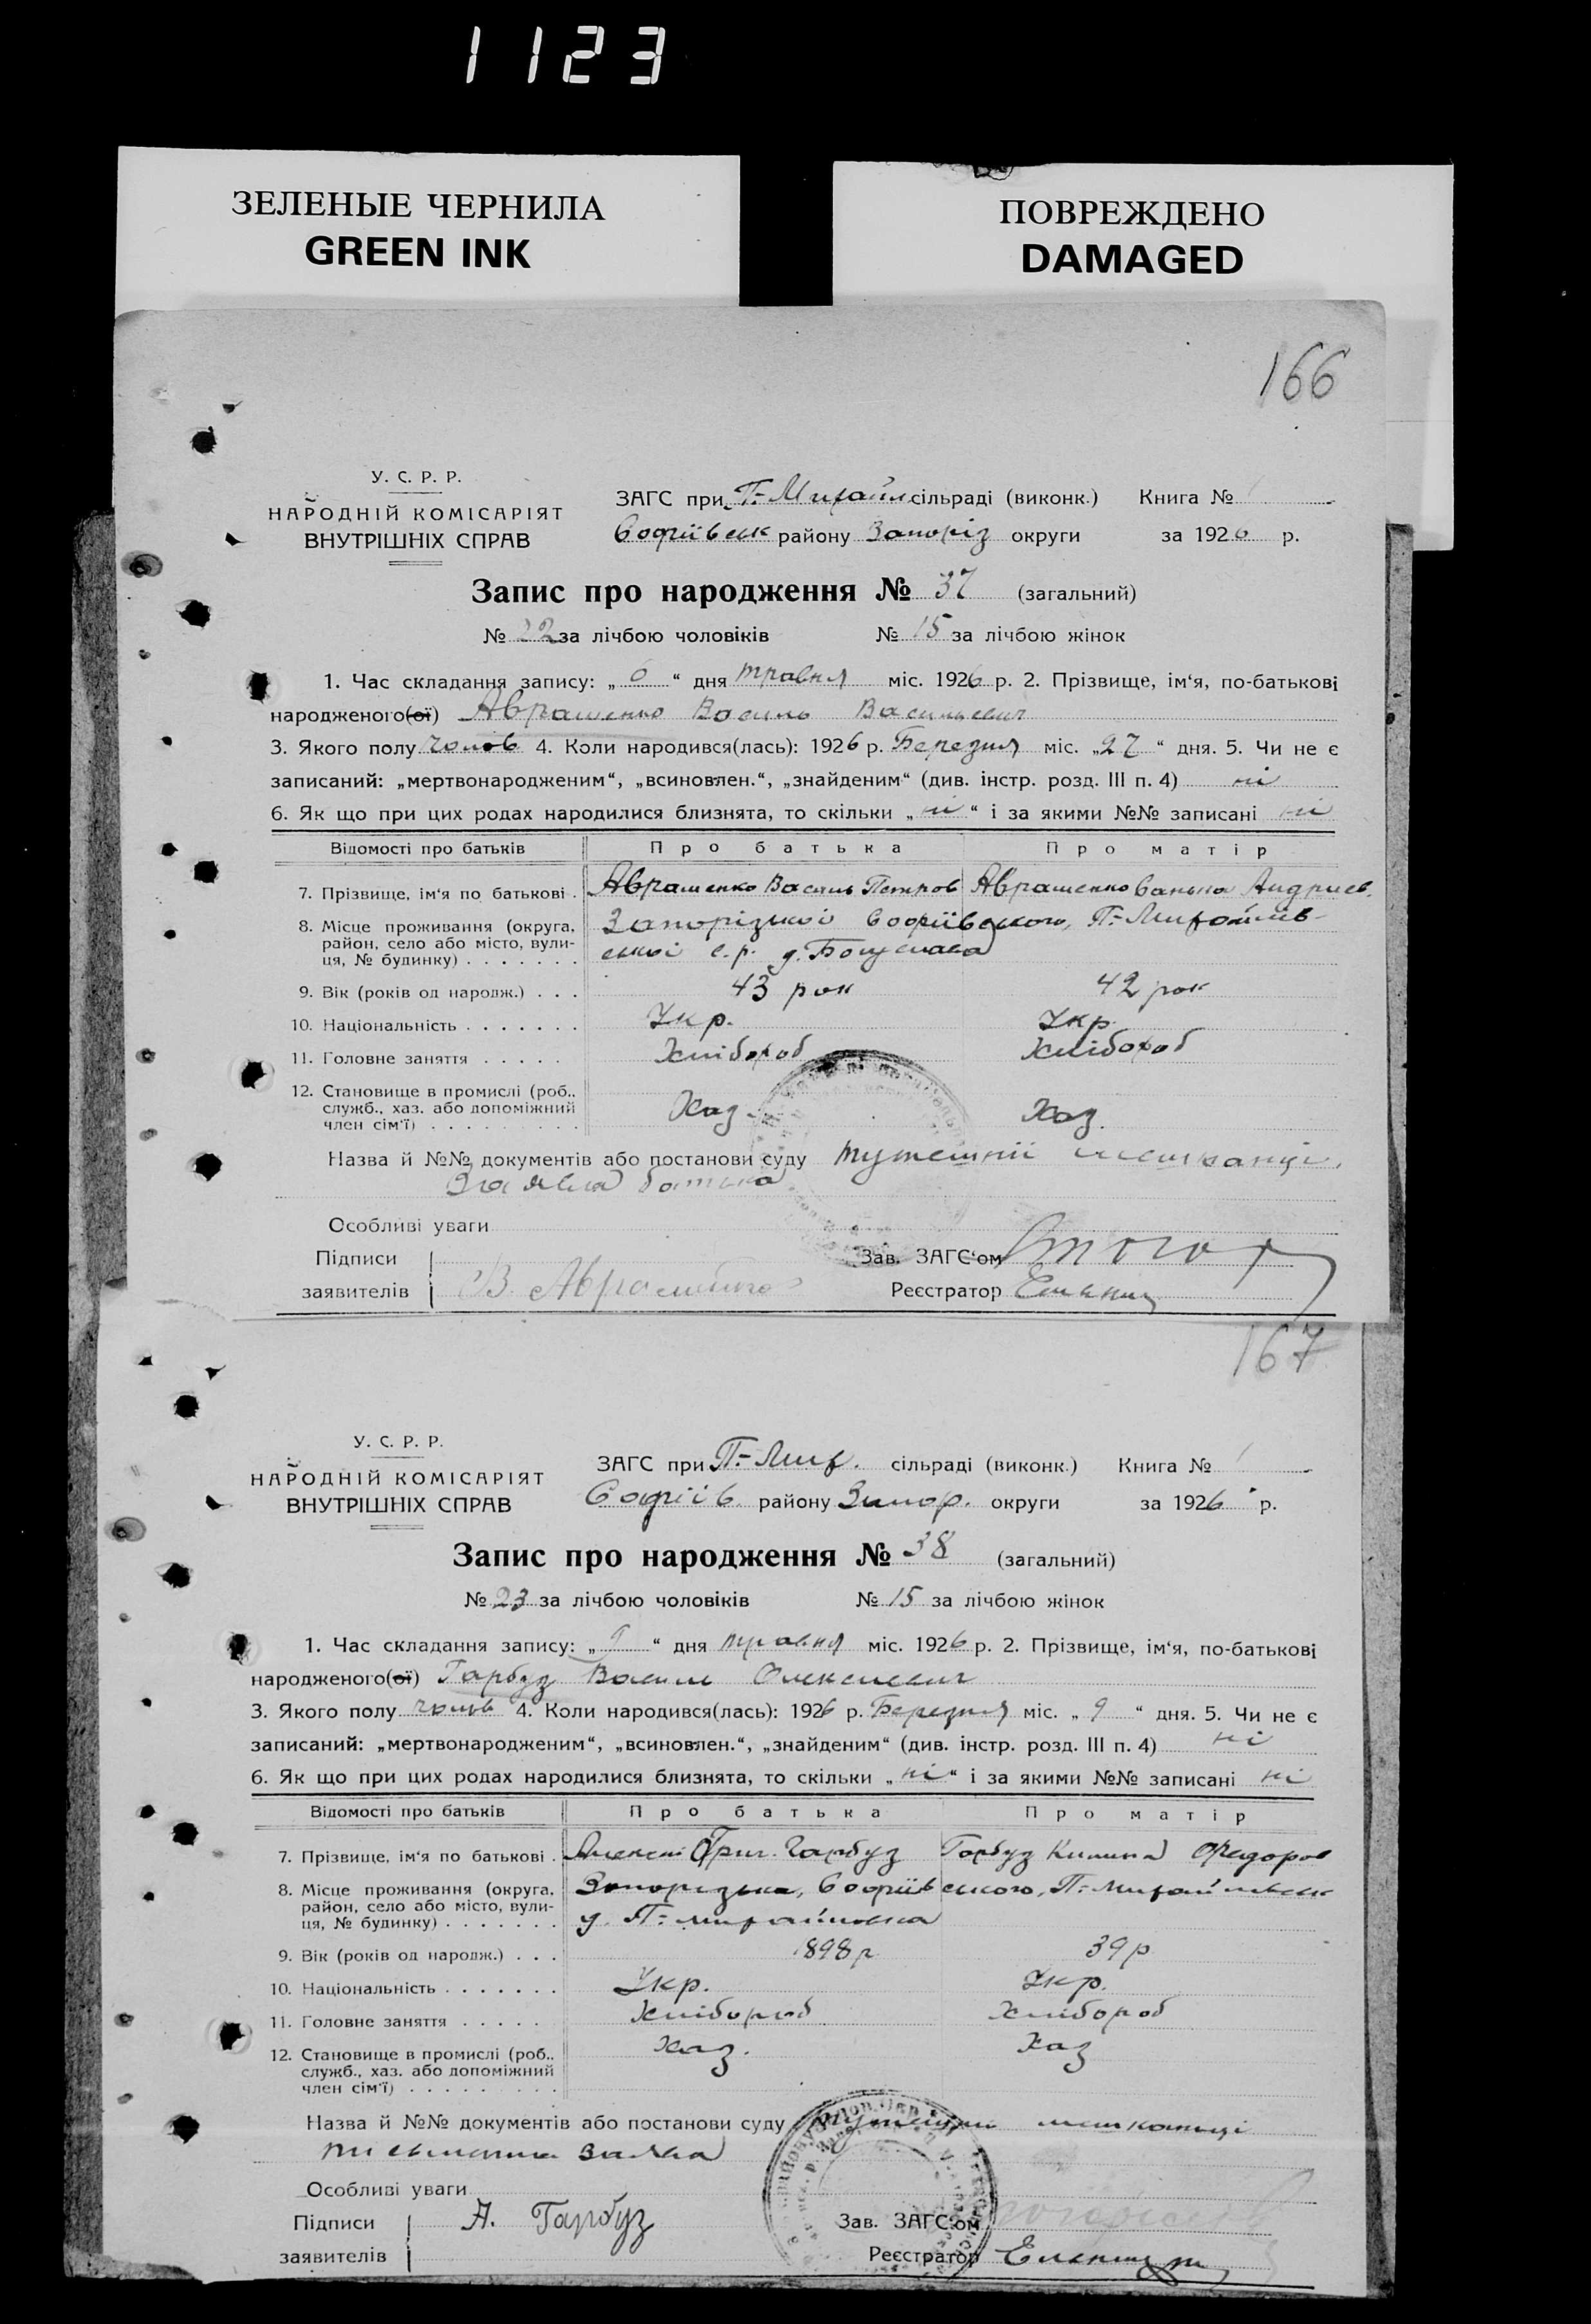 1123
ЗЕЛЕНЫЕ ЧЕРНИЛА
GREEN INK
ПОВРЕЖДЕНО
DAMAGED
166
У. С. Р. Р.
НАРОДНІЙ КОМІСАРІЯТ
ВНУТРІШНІХ СПРАВ
ЗАГС при П.-Михайл сільраді (виконк.) Книга № 1
Софіївськ району Запоріз округи за 1926 р.
Запис про народження № 37 (загальний)
№ 22 за лічбою чоловіків № 15 за лічбою жінок
1. Час складання запису: „ 6 “ дня травня міс. 1926 р. 2. Прізвище, ім‘я, по-батькові
народженого(ої) Аврашенко Василь Васильевич
3. Якого полу чолов 4. Коли народився(лась): 1926 р. Березня міс. „27“ дня. 5. Чи не є
записаний: „мертвонародженим“, „всиновлен.“, „знайденим“ (див. інстр. розд. III п. 4) ні
6. Як що при цих родах народилися близнята, то скільки „ні“ і за якими №№ записані ні
Відомості про батьків Про батька Про матір
7. Прізвище, ім‘я по батькові . Аврашенко Василь Петров Аврашенко Санька Андриев.
8. Місце проживання (округа, район, село або місто, вулиця, № будинку) . . . . . . . Запорізької Софіївського, П.-Михайлів-
ської с.р. д.
9. Вік (років од народж.) . . . 43 рок 42 рок
10. Національність . . . . . . . Укр. Укр.
11. Головне заняття . . . . . Хлібороб Хлібороб
12. Становище в промислі (роб.. служб., хаз. або допоміжний член сім‘ї) . . . . . . . . . Хаз. Хаз.
Назва й №№ документів або постанови суду тутешнії мешканці,
Заявла батька
Особливі уваги
Підписи Зав. ЗАГС‘ом
заявителів В Аврашенко Реєстратор
167
У. С. Р. Р.
НАРОДНІЙ КОМІСАРІЯТ
ВНУТРІШНІХ СПРАВ
ЗАГС при П.-Мих. сільраді (виконк.) Книга № 1
Софіїв. району Запор. округи за 1926 р.
Запис про народження № 38 (загальний)
№ 23 за лічбою чоловіків № 15 за лічбою жінок
1. Час складання запису: „ 9 “ дня травня міс. 1926 р. 2. Прізвище, ім‘я, по-батькові
народженого(ої) Гарбуз Василь Олексиевич
3. Якого полу чолов 4. Коли народився(лась): 1926 р. Березня міс. „ 9 “ дня. 5. Чи не є
записаний: „мертвонародженим“, „всиновлен.“, „знайденим“ (див. інстр. розд. III п. 4) ні
6. Як що при цих родах народилися близнята, то скільки „ні“ і за якими №№ записані ні
Відомості про батьків Про батька Про матір
7. Прізвище, ім‘я по батькові . Алексій Григ. Гарбуз Гарбуз Килина Федоров
8. Місце проживання (округа, район, село або місто, вулиця, № будинку) . . . . . . . Запорізька, Софіївського, П.-Михайлівськ
д. П.-Михайловка
9. Вік (років од народж.) . . . 1898 р 39 р
10. Національність . . . . . . . Укр. Укр.
11. Головне заняття . . . . . Хлібороб Хлібороб
12. Становище в промислі (роб.. служб., хаз. або допоміжний член сім‘ї) . . . . . . . . . Хаз. Хаз
Назва й №№ документів або постанови суду тутешни мешканці
письмена заява
Особливі уваги
Підписи А. Гарбуз Зав. ЗАГС‘ом
заявителів Реєстратор